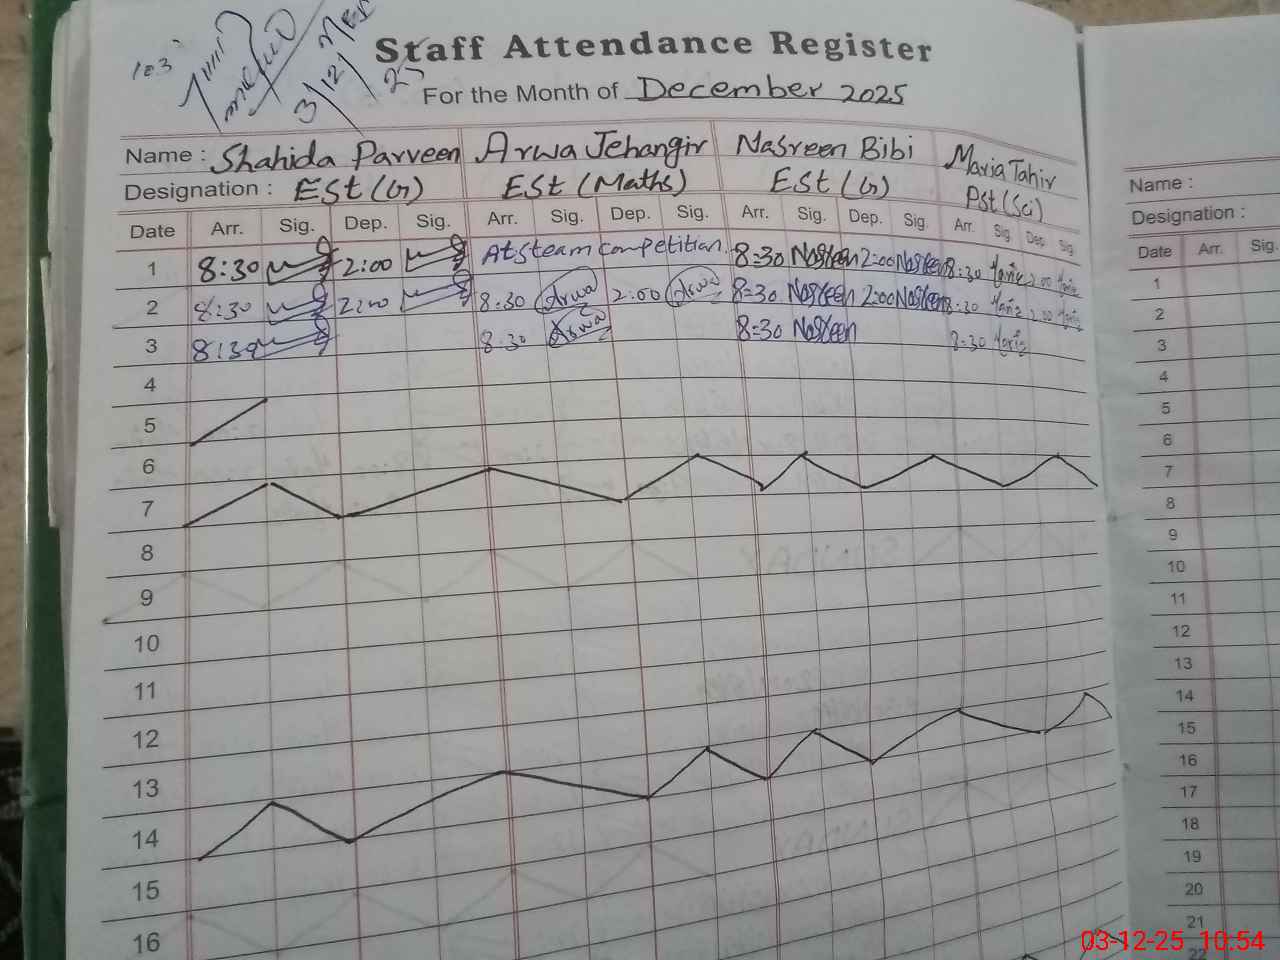 103
3/12/25
Staff Attendance Register
For the Month of December 2025
Name : Shahida Parveen Arwa Jehangir Nasreen Bibi Maria Tahir
Designation : ESt (G) ESt (Maths) ESt (G) Pst (Sci)
Date Arr. Sig. Dep. Sig. Arr. Sig. Dep. Sig. Arr. Sig. Dep. Sig. Arr. Sig. Dep. Sig.
1 8:30 2:00 At steam competition 8=30 Nasreen 2:00 Nasreen 8:30 Maria 2:00 Maria
2 8:30 2:00 8:30 Arwa 2:00 Arwa 8=30 Nasreen 2:00 Nasreen 8:30 Maria 2:00 Maria
3 8:30 8:30 Arwa 8=30 Nasreen 8:30 Maria
4
5
6
7
8
9
10
11
12
13
14
15
16
Name :
Designation :
Date Arr. Sig.
1
2
3
4
5
6
7
8
9
10
11
12
13
14
15
16
17
18
19
20
21
22
03-12-25 10:54